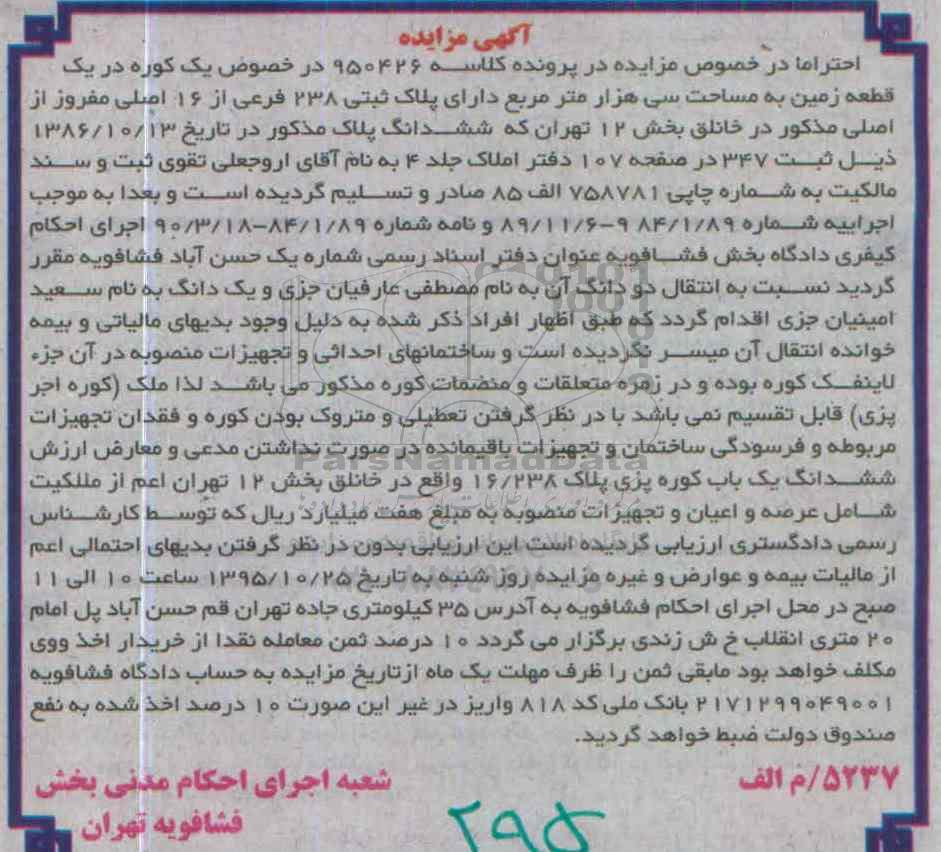 آگهی مزایده
احتراما در خصوص مزایده در پرونده کلاسه ۹۵۰۴۲۶ در خصوص یک کوره در یک
قطعه زمین به مساحت سی هزار متر مربع دارای پلاک ثبتی ۲۳۸ فرعی از ۱۶ اصلی مفروز از
اصلی مذکور در خانلق بخش ۱۲ تهران که ششدانگ پلاک مذکور در تاریخ ۱۳۸۶/۱۰/۱۳
ذیل ثبت ۳۴۷ در صفحه ۱۰۷ دفتر املاک جلد ۴ به نام آقای اروجعلی تقوی ثبت و سند
مالکیت به شماره چاپی ۷۵۸۷۸۱ الف ۸۵ صادر و تسلیم گردیده است و بعدا به موجب
اجراییه شماره ۸۴/۱/۸۹ ۹-۸۹/۱۱/۶ و نامه شماره ۸۴/۱/۸۹-۹۰/۳/۱۸ اجرای احکام
کیفری دادگاه بخش فشافویه عنوان دفتر اسناد رسمی شماره یک حسن آباد فشافویه مقرر
گردید نسبت به انتقال دو دانگ آن به نام مصطفی عارفیان جزی و یک دانگ به نام سعید
امینیان جزی اقدام گردد که طبق اظهار افراد ذکر شده به دلیل وجود بدیهای مالیاتی و بیمه
خوانده انتقال آن میسر نگردیده است و ساختمانهای احداثی و تجهیزات منصوبه در آن جزء
لاینفک کوره بوده و در زمره متعلقات و منضمات کوره مذکور می باشد لذا ملک (کوره اجر
پزی) قابل تقسیم نمی باشد با در نظر گرفتن تعطیلی و متروک بودن کوره و فقدان تجهیزات
مربوطه و فرسودگی ساختمان و تجهیزات باقیمانده در صورت نداشتن مدعی و معارض ارزش
ششدانگ یک باب کوره پزی پلاک ۱۶/۲۳۸ واقع در خانلق بخش ۱۲ تهران اعم از مللکیت
شامل عرصه و اعیان و تجهیزات منصوبه به مبلغ هفت میلیارد ریال که توسط کارشناس
رسمی دادگستری ارزیابی گردیده است این ارزیابی بدون در نظر گرفتن بدیهای احتمالی اعم
از مالیات بیمه و عوارض و غیره مزایده روز شنبه به تاریخ ۱۳۹۵/۱۰/۲۵ ساعت ۱۰ الی ۱۱
صبح در محل اجرای احکام فشافویه به آدرس ۳۵ کیلومتری جاده تهران قم حسن آباد پل امام
۲۰ متری انقلاب خ ش زندی برگزار می گردد ۱۰ درصد ثمن معامله نقدا از خریدار اخذ ووی
مکلف خواهد بود مابقی ثمن را ظرف مهلت یک ماه ازتاریخ مزایده به حساب دادگاه فشافویه
۲۱۷۱۲۹۹۰۴۹۰۰۱ بانک ملی کد ۸۱۸ واریز در غیر این صورت ۱۰ درصد اخذ شده به نفع
صندوق دولت ضبط خواهد گردید.
۵۲۳۷/م الف
شعبه اجرای احکام مدنی بخش
فشافویه تهران
ParsNamadData